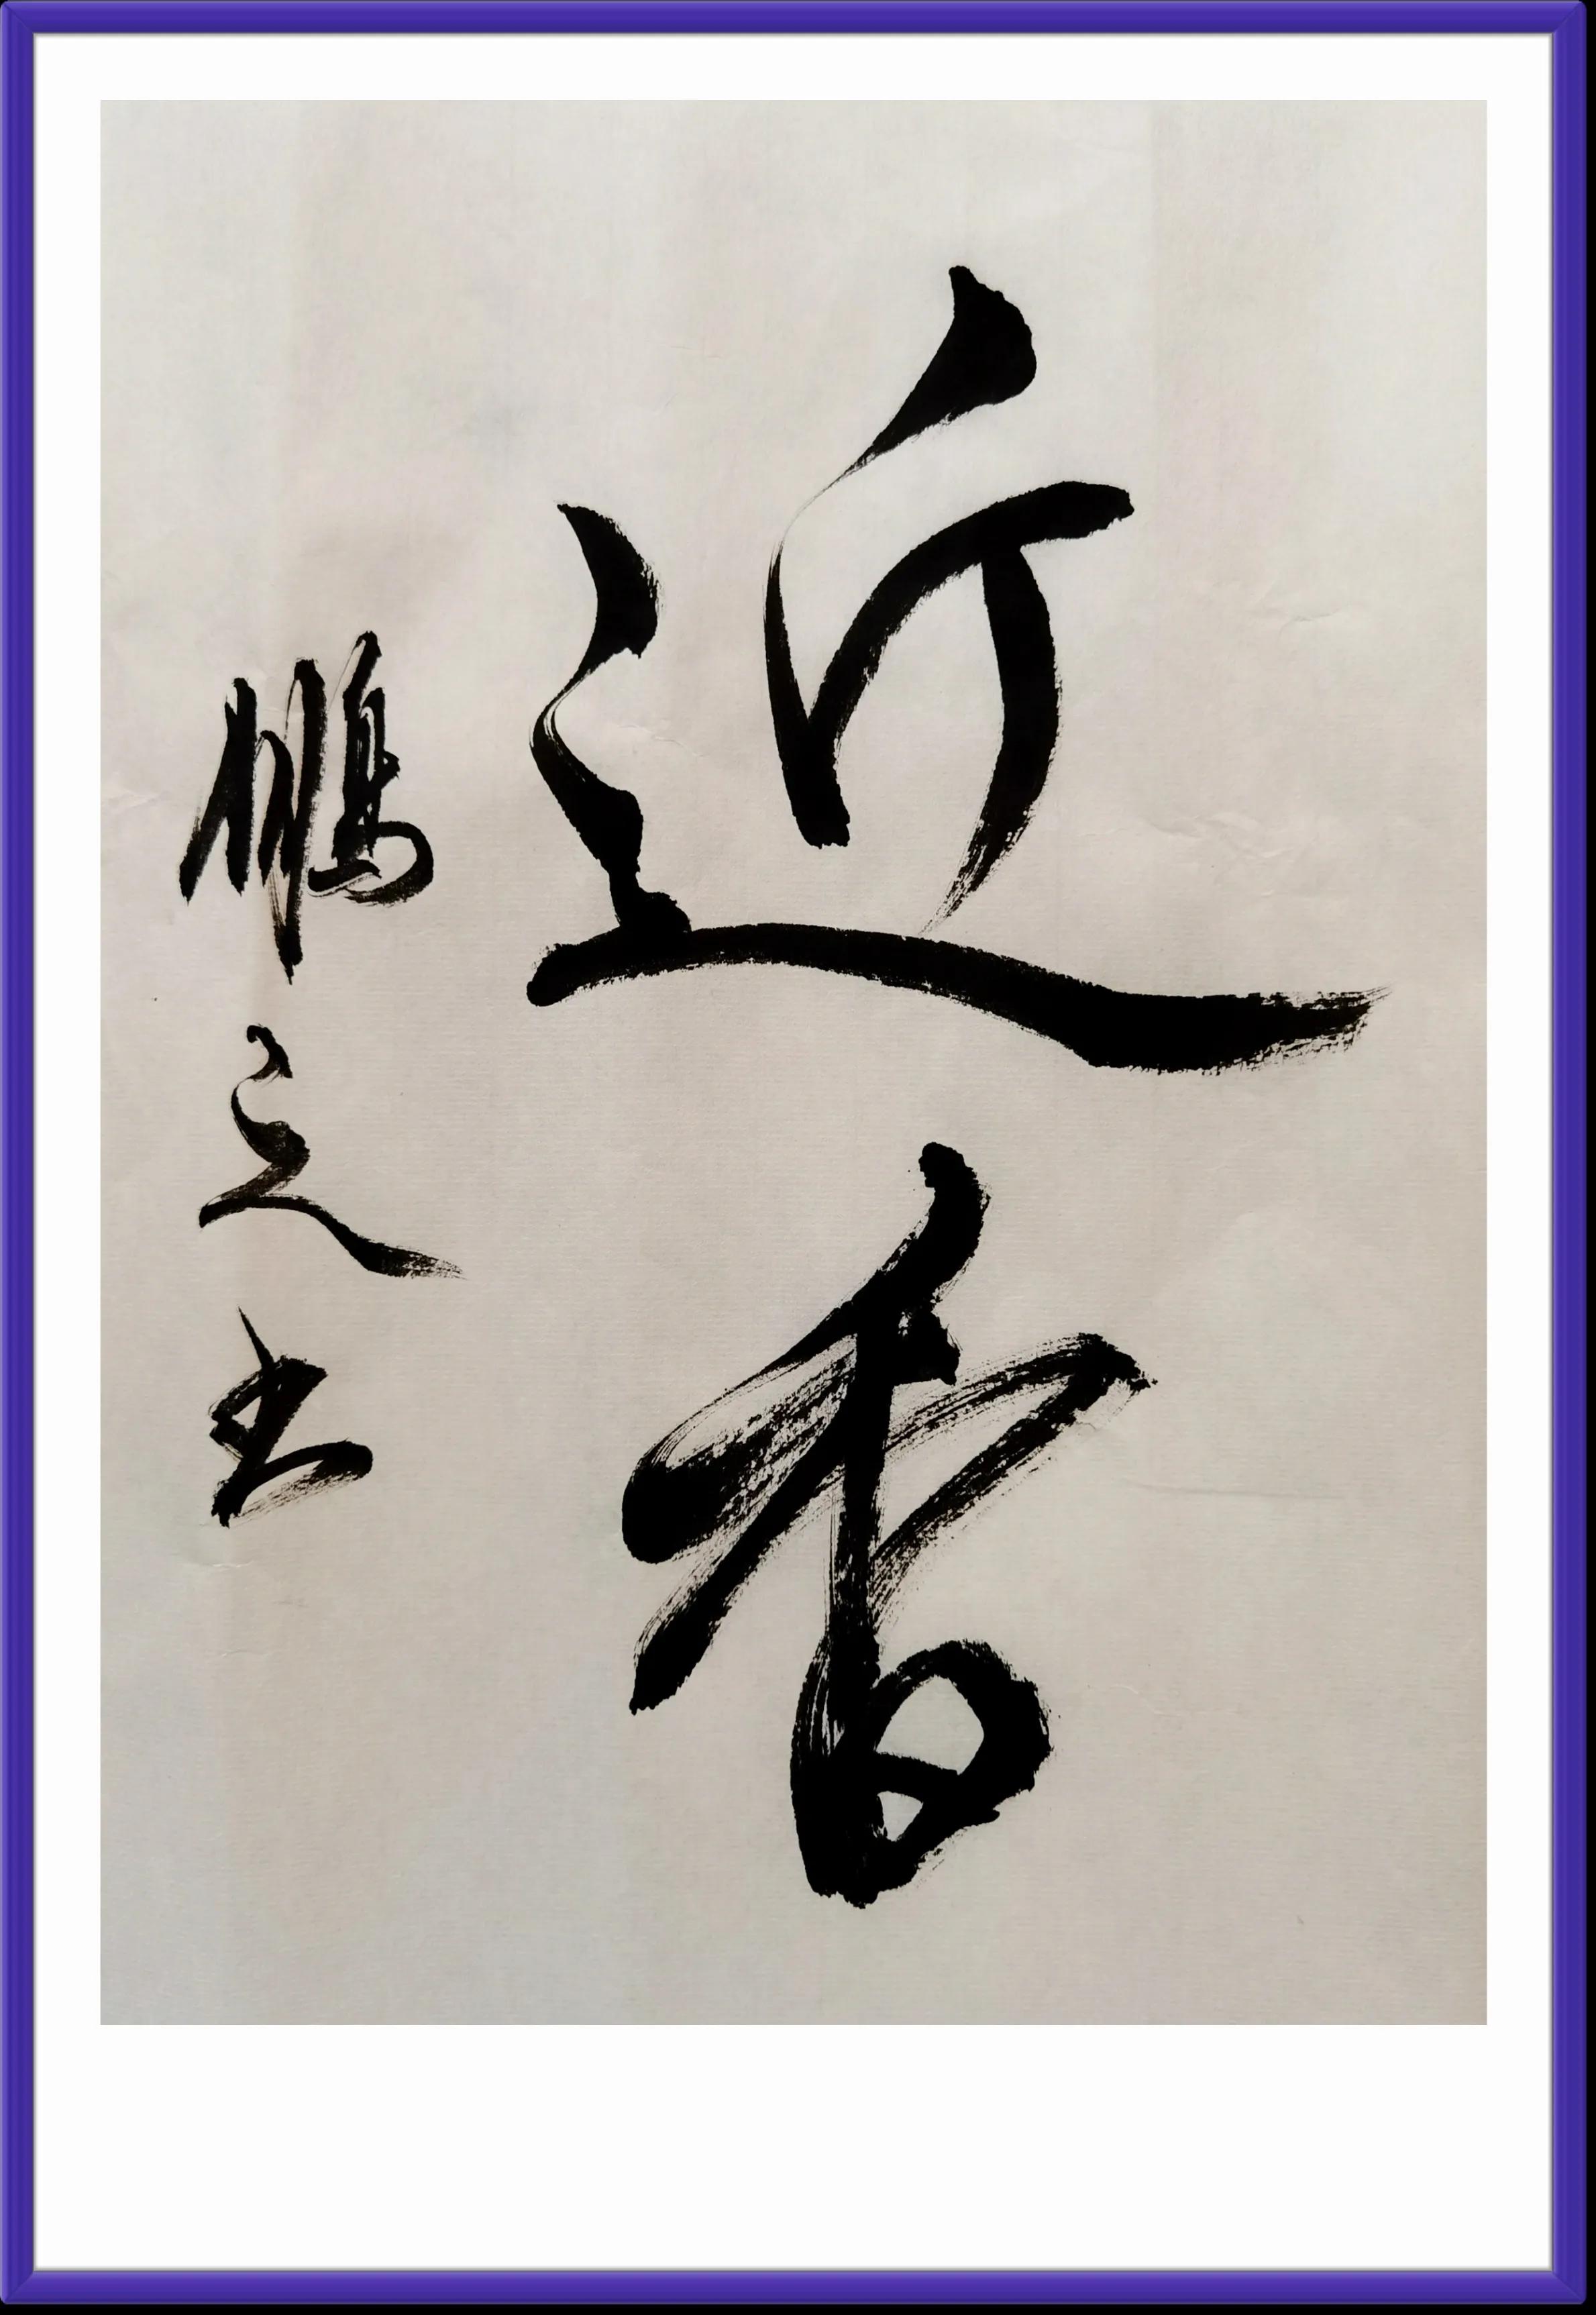 近香
鵬之书